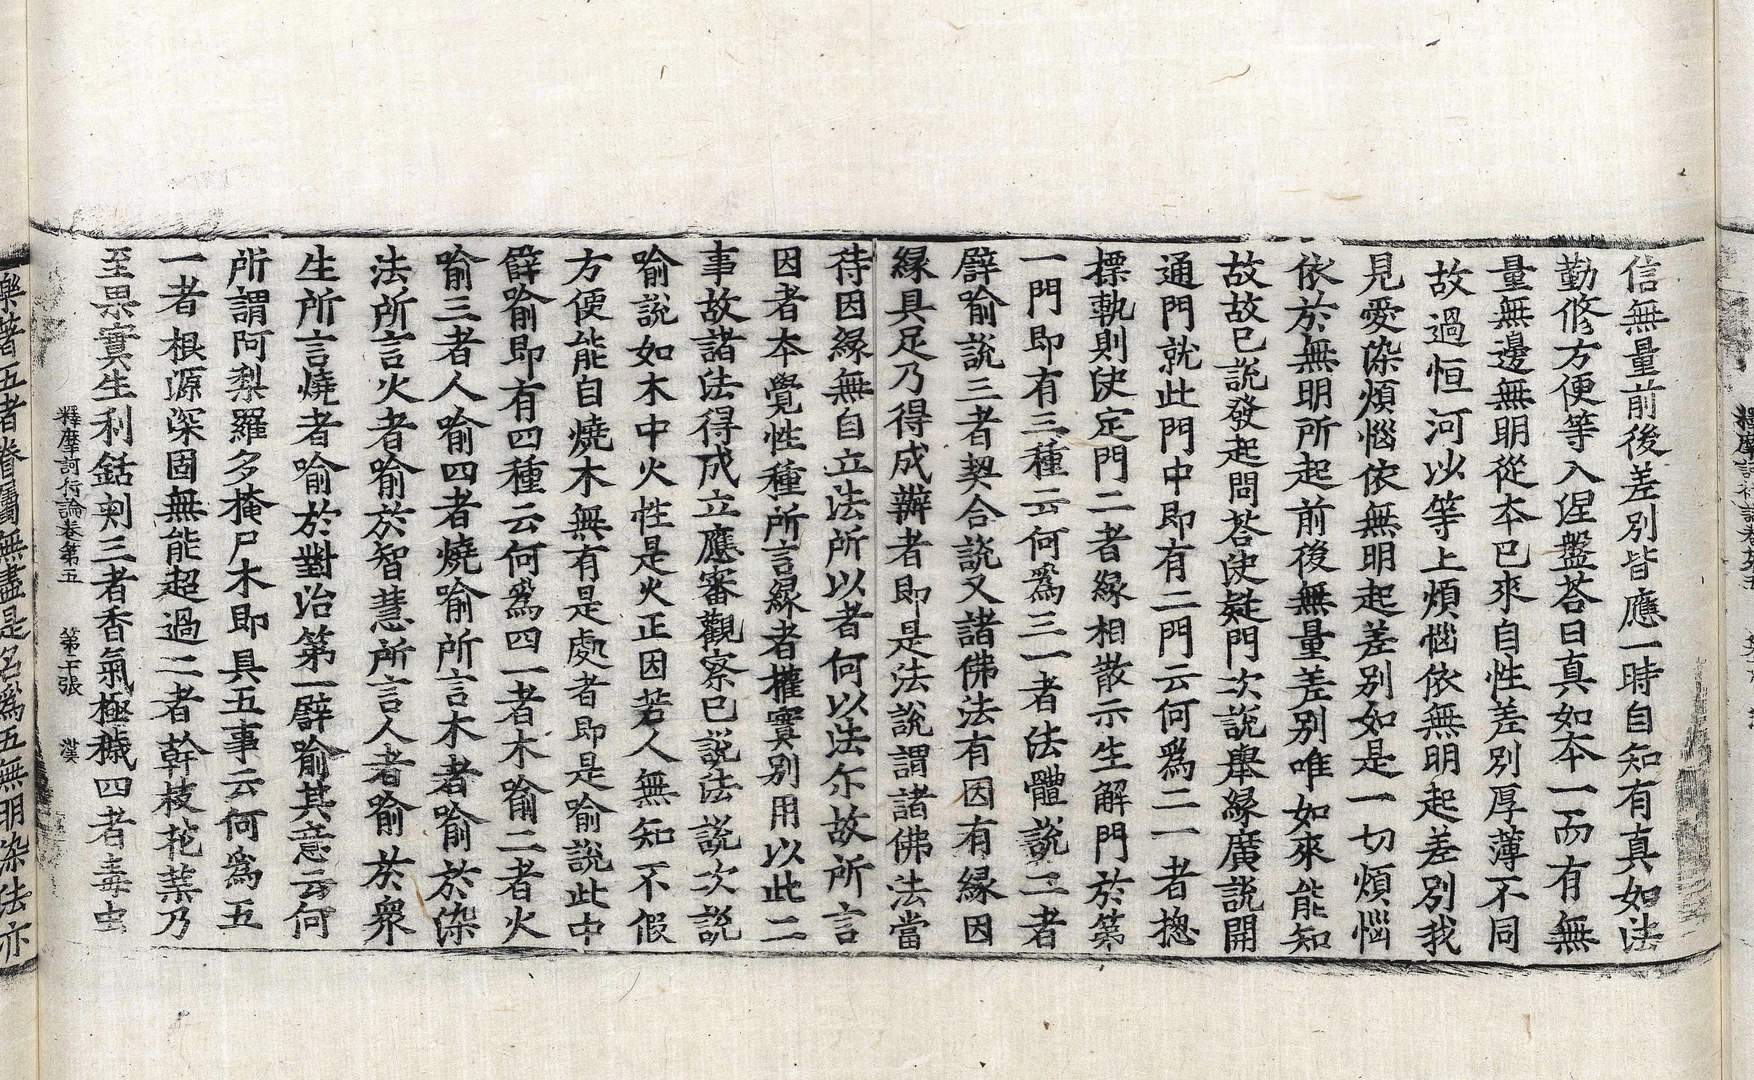 信無量前後差別皆應一時自知有真如法
勤修方便等入涅盤荅曰真如本一而有無
量無邊無明從本已來自性差別厚薄不同
故過恒河沙等上煩惱依無明起差別我
見愛染煩惱依無明起差別如是一切煩惱
依於無明所起前後無量差別唯如來能知
故故已說發起問荅決疑門次說舉緣廣說開
通門就此門中即有二門云何爲二一者揔
摽軌則決定門二者緣相散示生解門於第
一門即有三種云何爲三一者法體說二者
譬喻說三者契合說又諸佛法有因有緣因
緣具足乃得成辦者即是法說謂諸佛法當
待因緣無自立法所以者何以法尒故所言
因者本覺性種所言緣者權實別用以此二
事故諸法得成立應審觀察已說法說次說
喻說如木中火性是火正因若人無知不假
方便能自燒木無有是處者即是喻說此中
譬喻即有四種云何爲四一者木喻二者火
喻三者人喻四者燒喻所言木者喻於染
法所言火者喻於智慧所言人者喻於衆
生所言燒者喻於對治第一譬喻其意云何
所謂阿梨羅多掩尸木即具五事云何爲五
一者根源深固無能超過二者幹枝花葉乃
至果實生利銛刺三者香氣極穢四者毒虫
釋摩訶衍論卷第五 第十張 漢
樂著五者眷屬無盡是名爲五無明染法亦